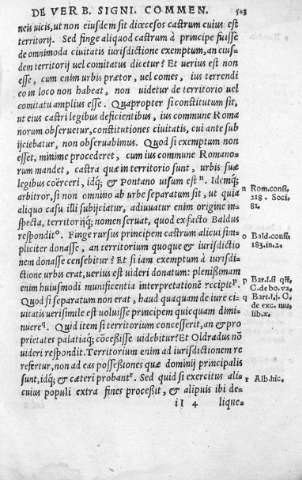 DE VERB. SIGNI. COMMEN. 503
neis uicis, ut non eiusdem sit dioecesos castrum cuius est
territorij. Sed finge aliquod castrum à principe fuisse
de omnimoda ciuitatis iurisdictione exemptum, an eius
dem territorij uel comitatus dicetur? Et uerius est non
esse, cum enim urbis prætor, uel comes, ius terrendi
eo in loco non habeat, non uidetur de territorio uel
comitatu amplius esse. Quapropter si constitutum sit,
ut eius castri legibus deficientibus, ius commune Roma
norum obseruetur, constitutiones ciuitatis, cui ante sub
ijciebatur, non obseruabimus. Quod si exemptum non
esset, minime procederet, cum ius commune Romano-
rum mandet, castra quæ in territorio sunt, urbis suæ
legibus coërceri, idq; & Pontano uisum est n. Idemq;
arbitror, si non omnino ab urbe separatum sit, ut quia
aliquo casu illi subijciatur, adiuuatur enim origine in-
specta, territoriumq; nomen seruat, quod ex facto Baldus
respondit o. Finge rursus principem castrum alicui sim-
pliciter donasse, an territorium quoque & iurisdictio
nem donasse censebitur? Et si iam exemptum à iurisdi-
ctione urbis erat, uerius est uideri donatum: plenissimam
enim huiusmodi munificentia interpretationē recipit p.
Quod si separatum non erat, haud quaquam de iure ci-
uitatis uerisimile est uoluisse principem quicquam dimi-
nuere q. Quid item si territorium concesserit, an & pro
prietates palatiaq; cōcessisse uidebitur? Et Oldradus nō
uideri respondit. Territorium enim ad iurisdictionem re
refertur, non ad eas possessiones quæ dominij principalis
sunt, idq; & cæteri probant r. Sed quid si exercitus ali-
cuius populi extra fines processit, & alipuis ibi de-
ii 4 lique-
n Rom. consi.
218. Soci.
82.
o Bald. consi.
183. in. 2.
p Bar. l. si qñ,
C. de bo. va.
q Bart. l. j. C.
de exc. mu.
lib. x.
r Alb. hic.